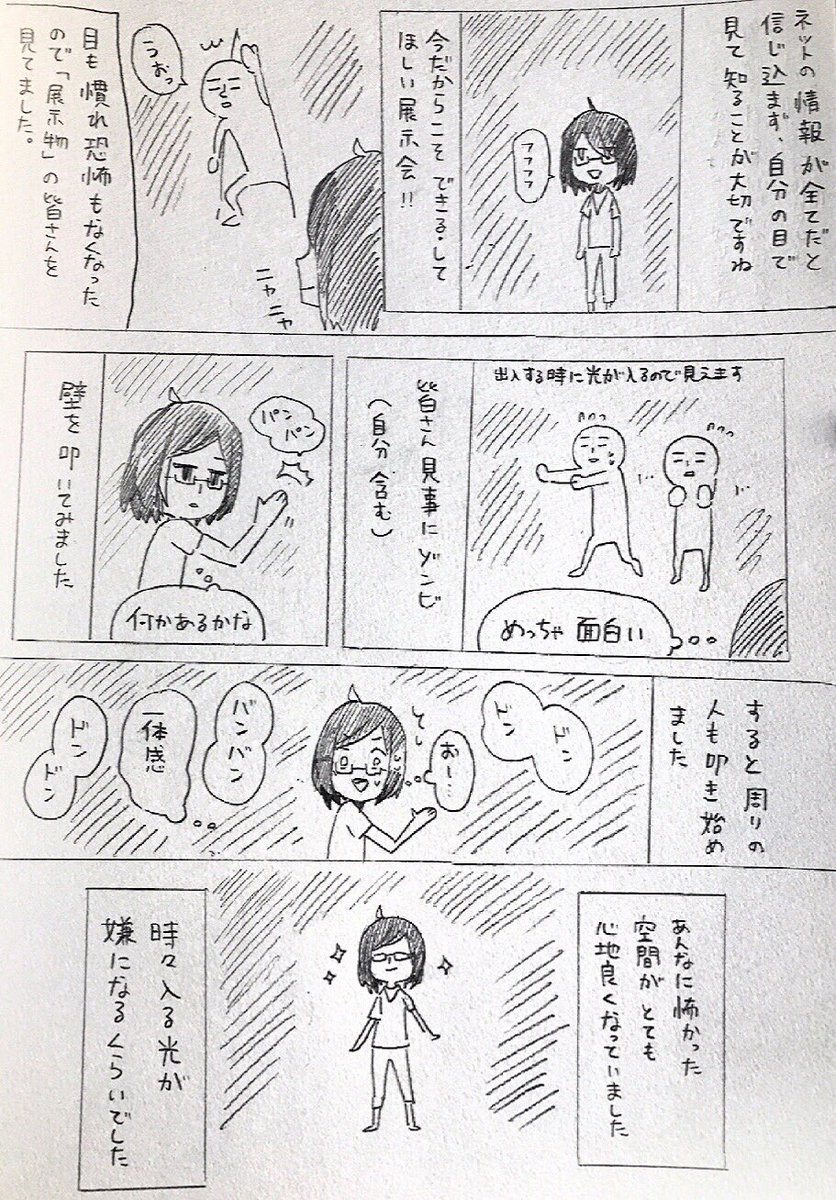 ネットの情報が全てだと
信じ込まず、自分の目で
見て知ることが大切ですね
フフフフ
今だからこそできる・して
ほしい展示会!!
うおっ
ニヤニヤ
目も慣れ恐怖もなくなった
ので「展示物」の皆さんを
見てました。
出入する時に光が入るので見えます
めっちゃ面白い
皆さん見事にゾンビ
(自分含む)
パン
パン
何かあるかな
壁を叩いてみました
すると周りの
人も叩き始め
ました
ドン
ドン
おー…
バンバン
一体感
ドン
ドン
あんなに怖かった
空間がとても
心地良くなっていました
時々入る光が
嫌になるくらいでした